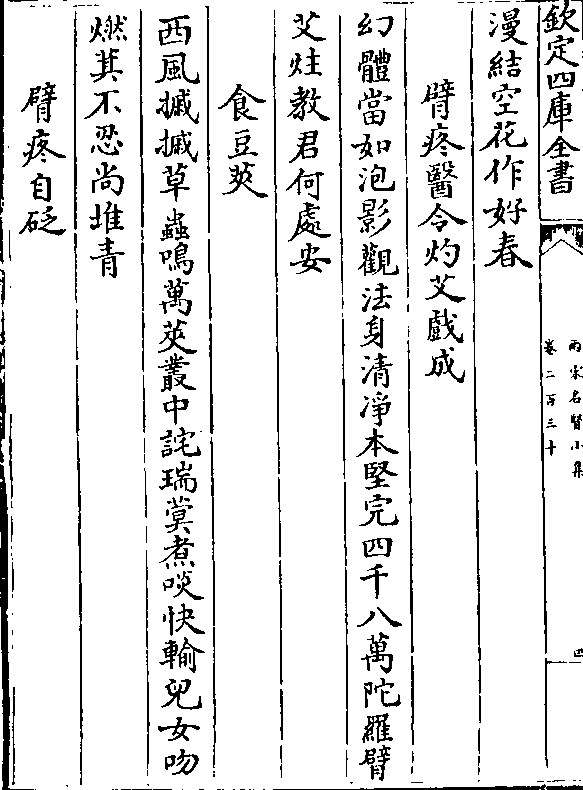 欽定四庫全書
兩宋名賢小集
卷二百三十
四
漫結空花作好春
臂疼醫令灼艾戲成
幻體當如泡影觀法身清淨本堅完四千八萬陀羅臂
艾炷教君何處安
食豆莢
西風摵摵草蟲鳴萬莢叢中詫瑞蓂煮啖快輸兒女吻
燃萁不忍尚堆青
臂疼自砭